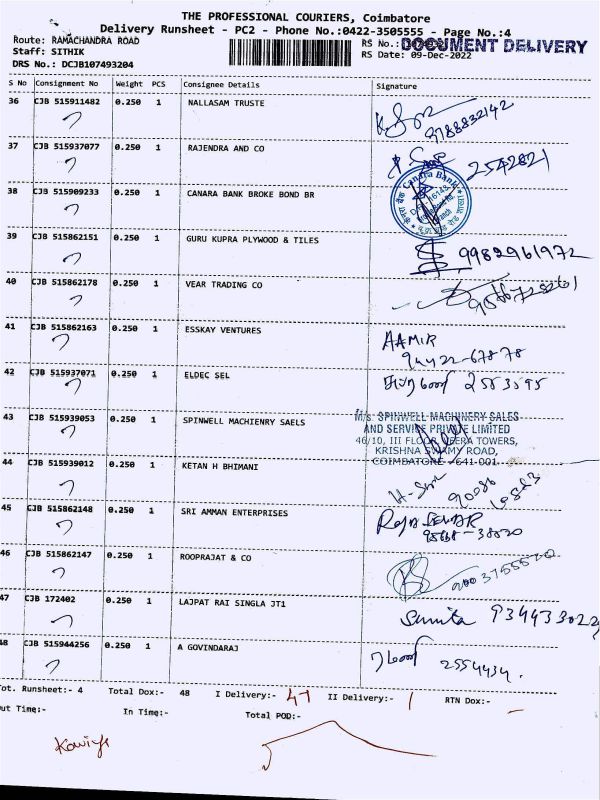 THE PROFESSIONAL COURIERS, Coimbatore
Delivery Runsheet - PC2 - Phone No.:0422-3505555 - Page No.:4
Route: RAMACHANDRA ROAD
RS No.:
DOCUMENT DELIVERY
Staff: SITHIK
RS Date: 09-Dec-2022
DRS No.: DCJB107493204
S No Consignment No Weight PCS Consignee Details Signature
36 CJB 515911482 0.250 1 NALLASAM TRUSTE
9788832142
37 CJB 515937077 0.250 1 RAJENDRA AND CO
2542821
38 CJB 515909233 0.250 1 CANARA BANK BROKE BOND BR
Canara Bank
39 CJB 515862151 0.250 1 GURU KUPRA PLYWOOD & TILES
9982961972
40 CJB 515862178 0.250 1 VEAR TRADING CO
41 CJB 515862163 0.250 1 ESSKAY VENTURES
AAMIR
94422-67878
42 CJB 515937071 0.250 1 ELDEC SEL
43 CJB 515939053 0.250 1 SPINWELL MACHIENRY SAELS
M/s. SPINWELL MACHINERY SALES
AND SERVICE PRIVATE LIMITED
46/10, III FLOOR, VEERA TOWERS,
KRISHNA SWAMY ROAD,
COIMBATORE - 641 001
44 CJB 515939012 0.250 1 KETAN H BHIMANI
45 CJB 515862148 0.250 1 SRI AMMAN ENTERPRISES
46 CJB 515862147 0.250 1 ROOPRAJAT & CO
47 CJB 172402 0.250 1 LAJPAT RAI SINGLA JT1
Sunita
48 CJB 515944256 0.250 1 A GOVINDARAJ
2554434.
Tot. Runsheet:- 4 Total Dox:- 48 I Delivery:- 47 II Delivery:- 1 RTN Dox:- —
Out Time:- In Time:- Total POD:-